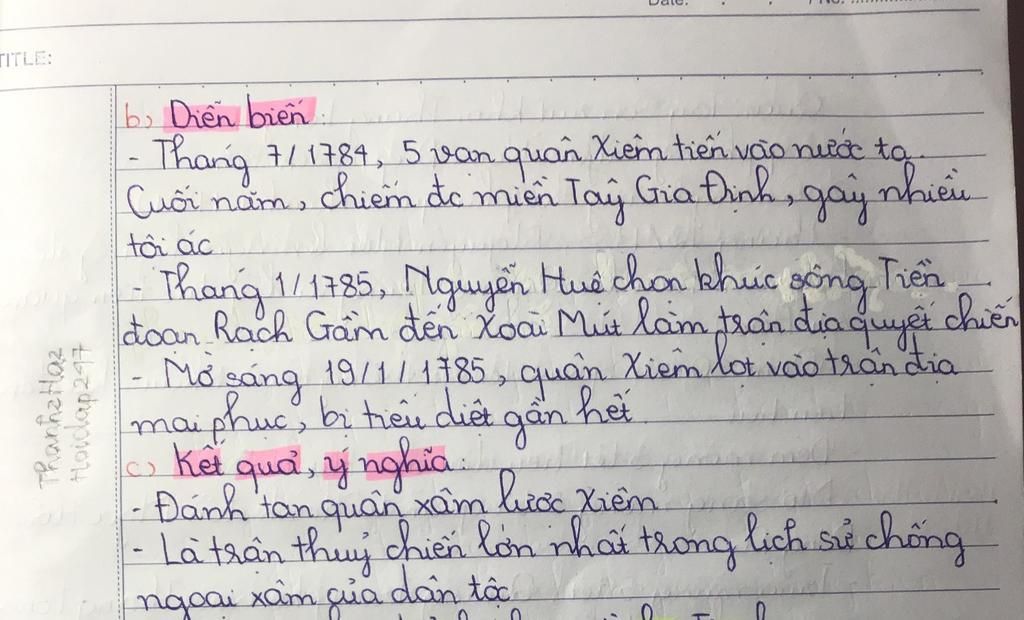 Date: . . / No:
TITLE:
b) Diễn biến:
- Tháng 7/1784, 5 vạn quân Xiêm tiến vào nước ta.
Cuối năm, chiếm đc miền Tây Gia Định, gây nhiều
tội ác
- Tháng 1/1785, Nguyễn Huệ chọn khúc sông Tiền
đoạn Rạch Gầm đến Xoài Mút làm trận địa quyết chiến
- Mờ sáng 19/1/1785, quân Xiêm lọt vào trận địa
mai phục, bị tiêu diệt gần hết
c) Kết quả, ý nghĩa:
- Đánh tan quân xâm lược Xiêm
- Là trận thuỷ chiến lớn nhất trong lịch sử chống
ngoại xâm của dân tộc
ThanhzHaz
Hoidap247